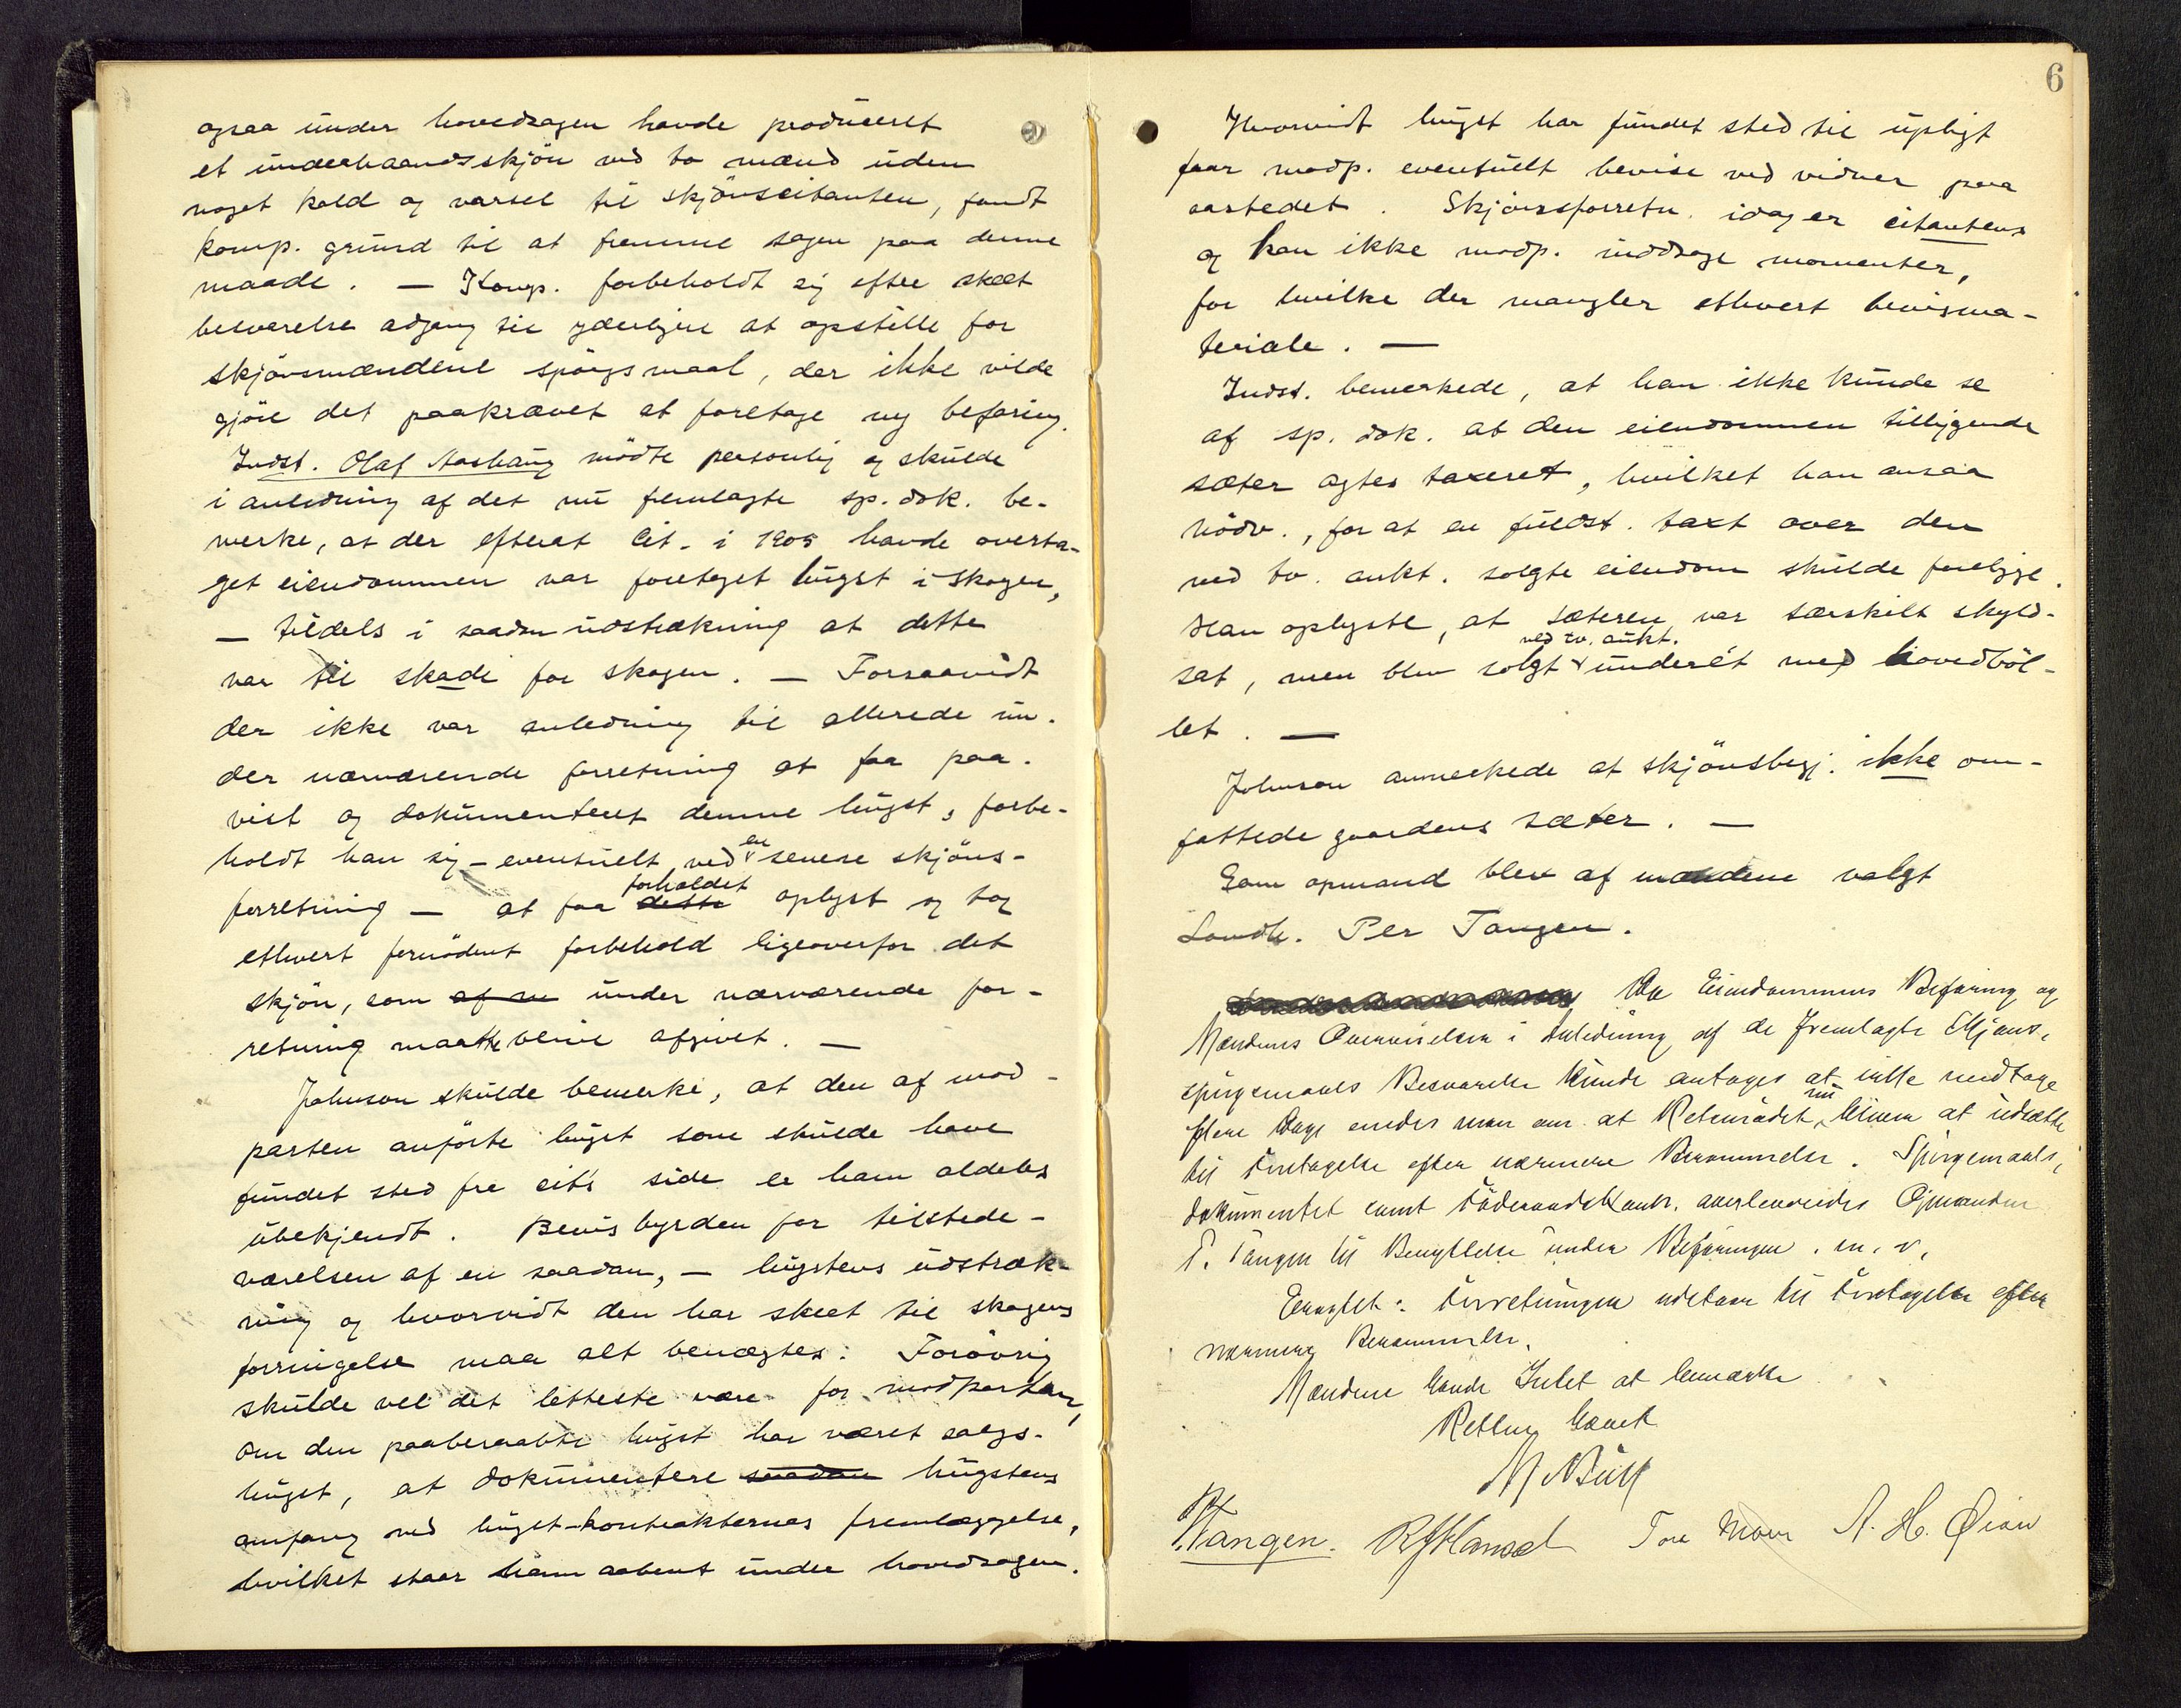 ogsaa under hovedsagen havde produceret
et underhaandsskjön ved to mænd uden
noget kald og varsel til skjönscitanten, fandt
komp. grund til at fremme sagen paa denne
maade. — Komp. forbeholdt sig efter skeet
besvarelse adgang til yderligere at opstille for
skjönsmændene spörgsmaal, der ikke vilde
gjöre det paakrævet at foretage ny befaring.
Indst. Olaf Aashaug mödte personlig og skulde
i anledning af det nu fremlagte sp. dok. be-
merke, at der efterat Cit. i 1905 havde overta-
get eiendommen var foretaget hugst i skogen,
— tildels i saadan udstrækning at dette
var til skade for skogen. — Forsaavidt
der ikke var anledning til allerede un-
der nærværende forretning at faa paa-
vist og dokumenteret denne hugst, forbe-
holdt han sig – eventuelt ved en senere skjöns-
forretning — at faa dette forholdet oplyst og tog
ethvert fornödent forbehold ligeoverfor det
skjön, som af nu under nærværende for-
retning maatte blive afgivet. —
Johnson skulde bemerke, at den af mod-
parten anförte hugst som skulde have
fundet sted fra cit's side er ham aldeles
ubekjendt. Bevisbyrden for tilstede-
værelsen af en saadan, — hugstens udstræk-
ning og hvorvidt den har skeet til skogens
forringelse maa alt benægtes. Forövrig
skulde vel det letteste være for modparten,
om den paaberaabte hugst har været salgs-
hugst, at dokumentere saadan hugstens
omfang ved hugst-kontrakternes fremlæggelse,
hvilket staar ham aabent under hovedsagen.
6
Hvorvidt hugst har fundet sted til upligt
faar modp. eventuelt bevise ved vidner paa
aastedet. Skjönsforretn. idag er citantens
og kan ikke modp. inddrage momenter,
for hvilke der mangler ethvert bevisma-
teriale. —
Indst. bemerkede, at han ikke kunde se
af sp. dok. at den eiendommen tilliggende
sæter agtes taxeret, hvilket han ansaa
nödv., for at en fuldst. taxt over den
ved tv. aukt. solgte eiendom skulde foreligge.
Han oplyste, at sæteren var særskilt skyld-
sat, men blev solgt ved tv. aukt. underét med hovedböl-
let. —
Johnson anmerkede at skjönsbegj. ikke om-
fattede gaardens sæter. —
Som opmand blev af mændene valgt
Landh. Per Tangen.
Da Eiendommens Befaring og
Mændenes Overveielser i Anledning af de fremlagte Skjöns-
spörgsmaals Besvarelse kunde antages at ville medtage
flere Dage enedes man om at Retsmödet nu bliver at udsætte
til Foretagelse efter nærmere Berammelse. Spörgsmaals-
dokumentet samt overleveredes Opmanden
P. Tangen til Benyttelse under Befaringen. m. v.
Eragtet: Forretningen udstaar til Foretagelse efter
nærmere Berammelse.
Mændene havde Intet at bemærke
Retten hævet
M Bull
P. Tangen. Tore Moen A. H. Øian